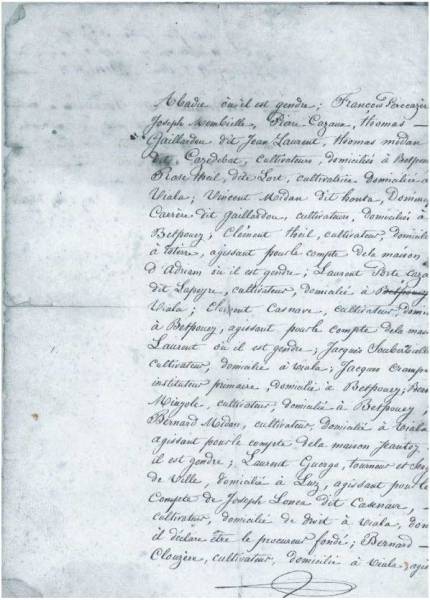 Madre où il est gendre ; François
Joseph Membielle, Pierre Cazaux, thomas —
Gaillardou dit Jean Laurent, thomas médan
dit Cazedebat, cultivateurs, domiciliés à Betpouey
Rose theil dite Lort, cultivatrice domiciliée à
Viala ; Vincent Midan dit honta, Domini
Carrère dit gaillardou, cultivateurs, domiciliés à
Betpouey ; Clément theil, cultivateur, domicilié
à , agissant pour le compte de la maison
d'Adram où il est gendre ; Laurent Porte
dit Lapeyre, cultivateur, domicilié à Betpouey
Viala ; Clément Casnave, cultivateur, domi
à Betpouey, agissant pour le compte de la mai
Laurent où il est gendre ; Jacques
cultivateur, domicilié à Viala ; Jacques Crampe
instituteur primaire, domicilié à Betpouey ;
Mingole, cultivateur, domicilié à Betpouey,
Bernard Midan, cultivateur, domicilié à Viala
agissant pour le compte de la maison
il est gendre ; Laurent Guorgo, tourneur et
de Ville, domicilié à Luz, agissant pour le
Compte de Joseph Lonca dit Casenave, —
cultivateur, domicilié de droit à Viala, don
il déclare être le procureur fondé ; Bernard —
Clouzère, cultivateur, domicilié à Viala agis